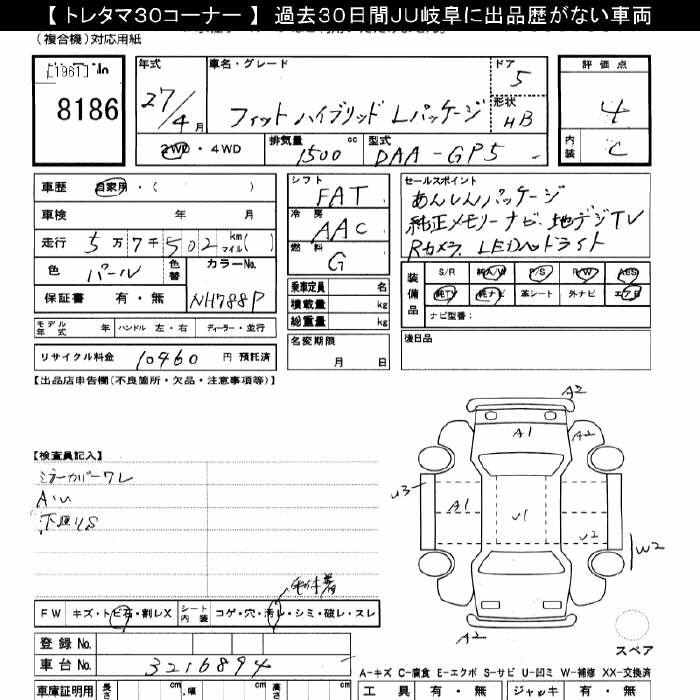 【 トレタマ30コーナー 】 過去30日間JU岐阜に出品歴がない車両
(複合機)対応用紙
[1961]
8186
年式 27/4月
車名・グレード
フィットハイブリッド Lパッケージ
ドア 5
形状 HB
評価点
4
内装 C
2WD・4WD
排気量 1500 cc
型式 DAA-GP5
車歴 自家用・( )
車検 年 月
走行 5万7千502 km マイル( )
色 パール
色替
カラーNo. NH788P
保証書 有・無
シフト FAT
冷房 AAC
燃料 G
乗車定員 名
積載量 kg
総重量 kg
名変期限
月 日
セールスポイント
あんしんパッケージ
純正メモリーナビ 地デジTV
Rカメラ LEDヘッドライト
装備品
S/R 純A/W P/S P/W ABS
純TV 純ナビ 革シート 外ナビ エアB
ナビ型番:
モデル年式 年 ハンドル 左・右 ディーラー・並行
リサイクル料金 10460 円 預託済
後日品
【出品店申告欄(不良箇所・欠品・注意事項等)】
【検査員記入】
ミラーカバーワレ
A・U
下廻りS
A2
A1
A2
U3
A1
U1
U2
W2
A2
スペア
FW キズ・トビ石・割レX
シート内装 コゲ・穴・汚レ・シミ・破レ・スレ
登録 No.
車台 No. 3216894
A-キズ C-腐食 E-エクボ S-サビ U-凹ミ W-補修 XX-交換済
車庫証明用 長さ cm ・幅 cm 高さ cm
工具 有・無 ジャッキ 有・無